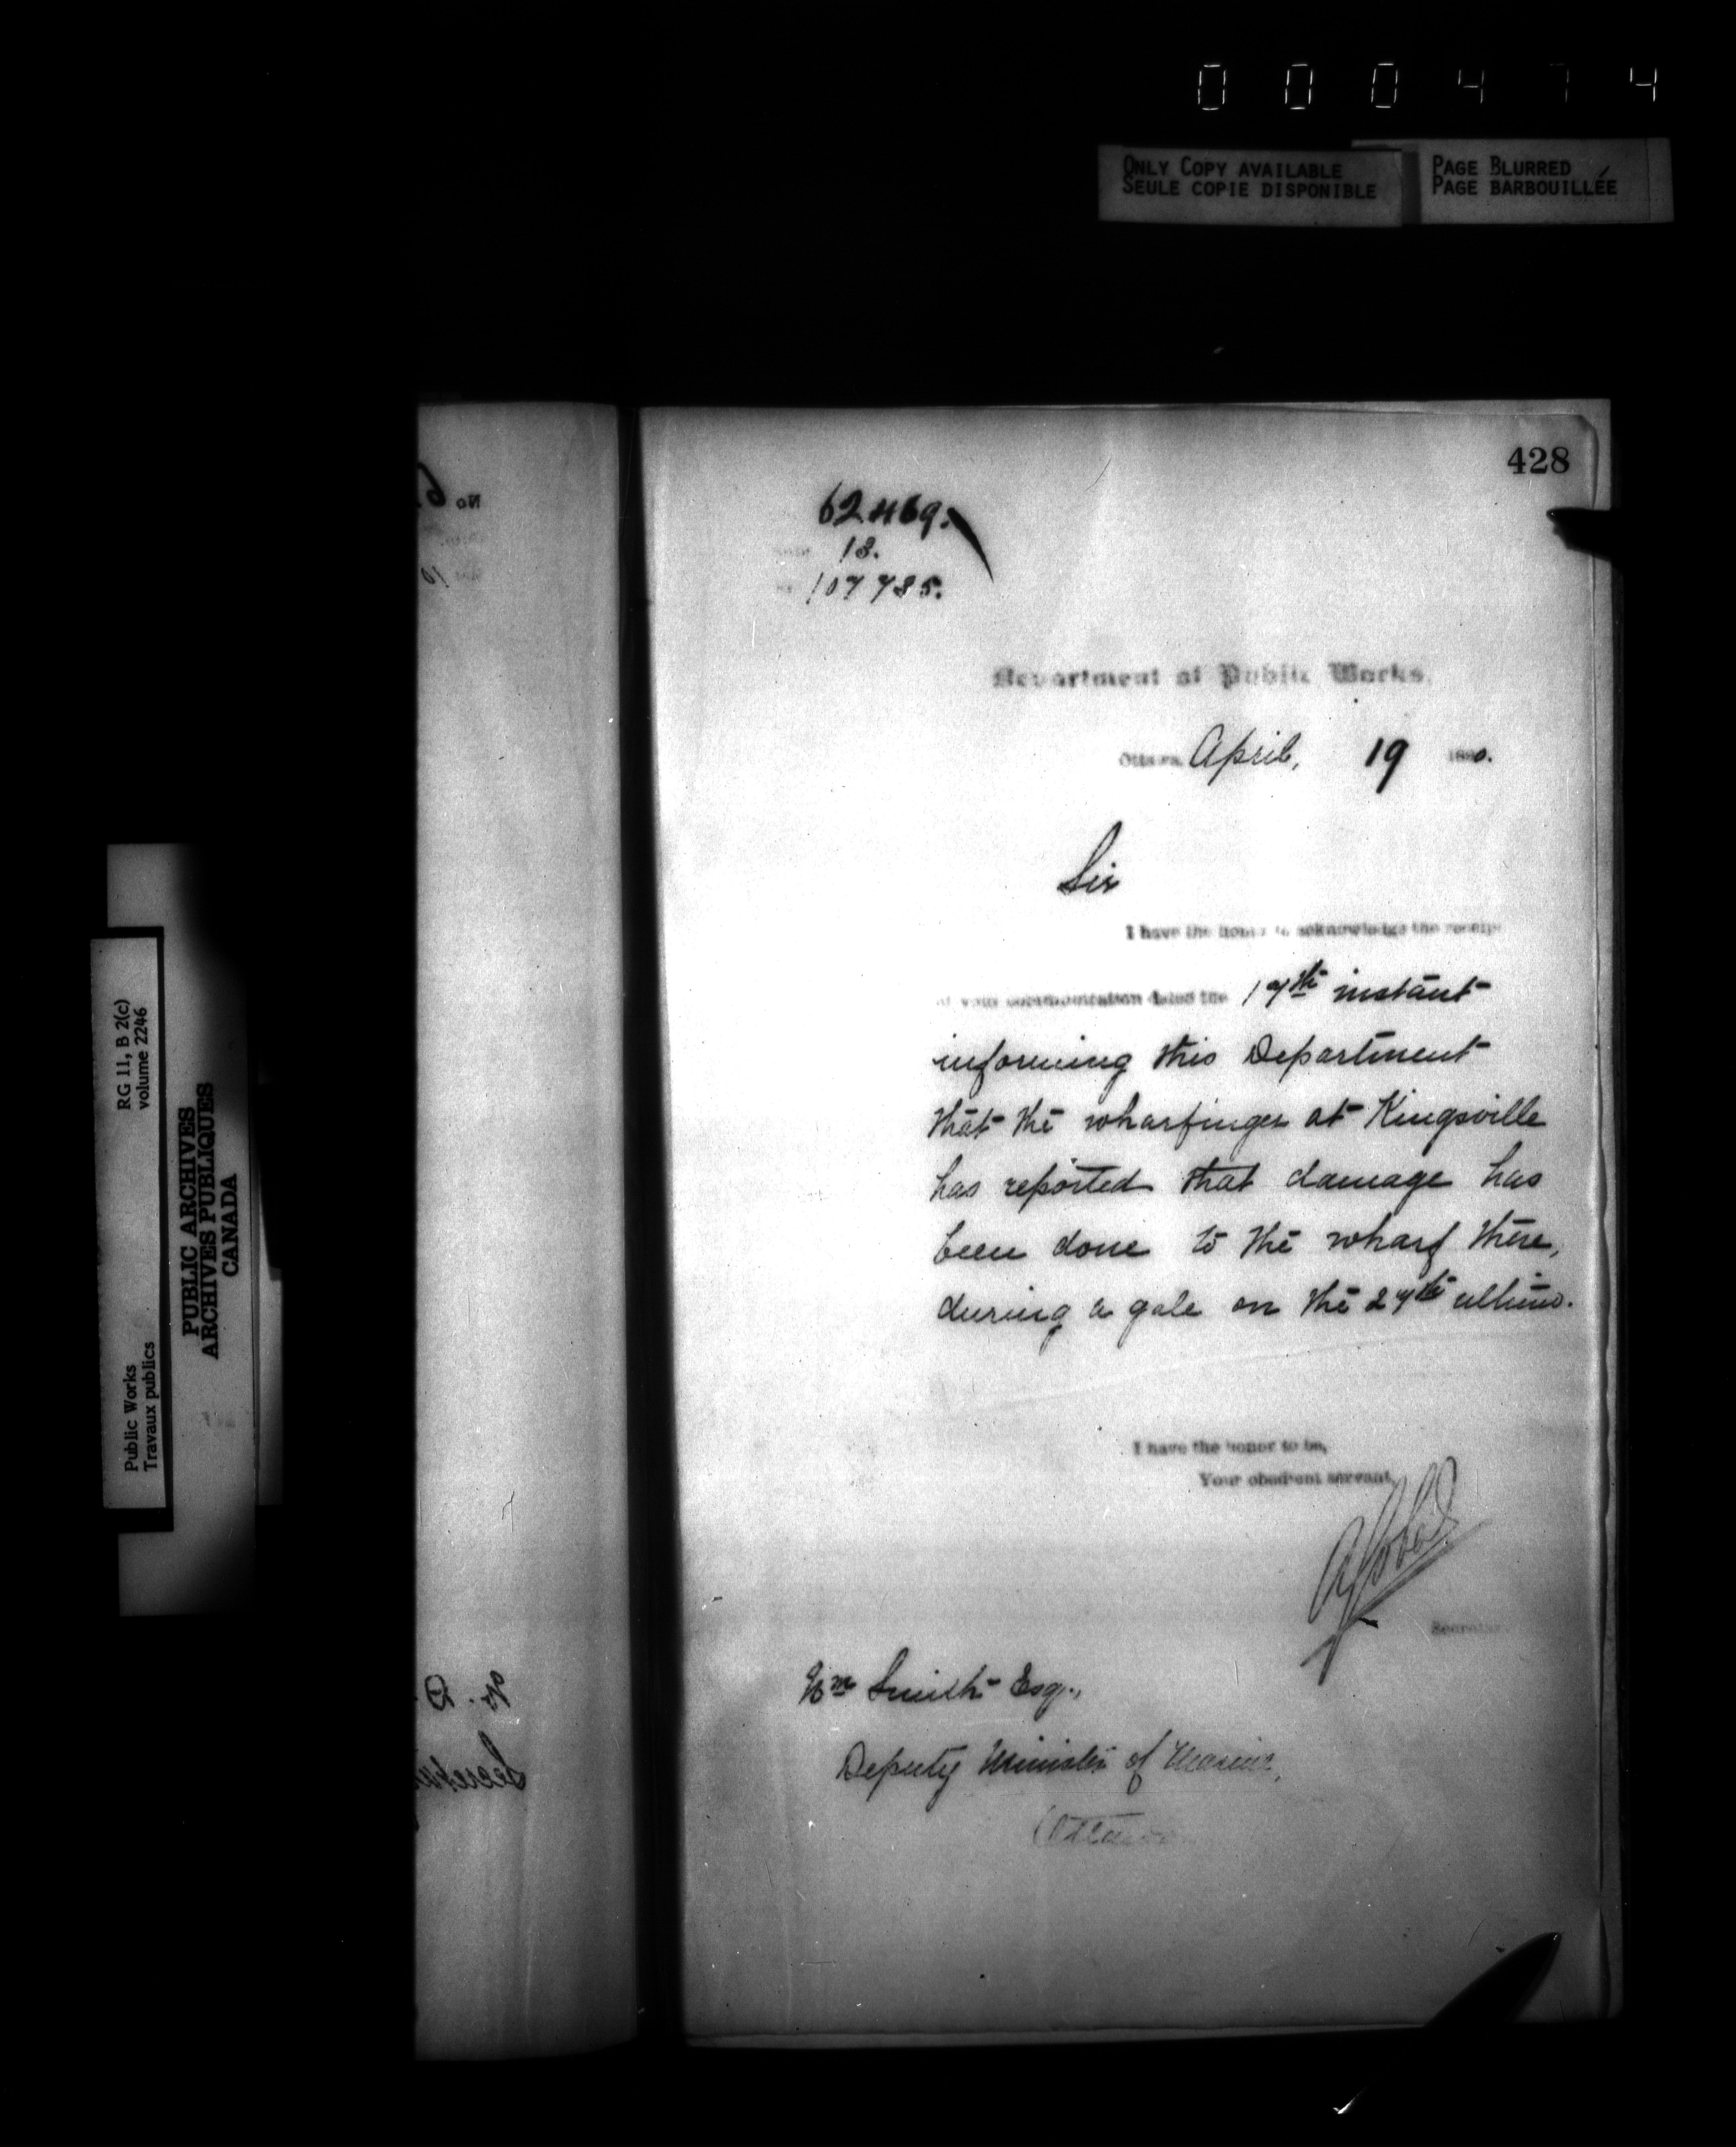 000474
ONLY COPY AVAILABLE
SEULE COPIE DISPONIBLE
PAGE BLURRED
PAGE BARBOUILLÉE
428
62469.
13.
107785.
Department of Public Works.
Ottawa, April, 19 1890.
Sir
I have the honor to acknowledge the receipt
of your communication dated the 17th instant
informing this Department
that the wharfinger at Kingsville
has reported that damage has
been done to the wharf there,
during a gale on the 27th ultimo.
I have the honor to be,
Your obedient servant,
Secretary
Wm Smith Esq.,
Deputy Minister of Marine,
Ottawa
RG 11, B 2(c)
volume 2246
Public Works
Travaux publics
PUBLIC ARCHIVES
ARCHIVES PUBLIQUES
CANADA